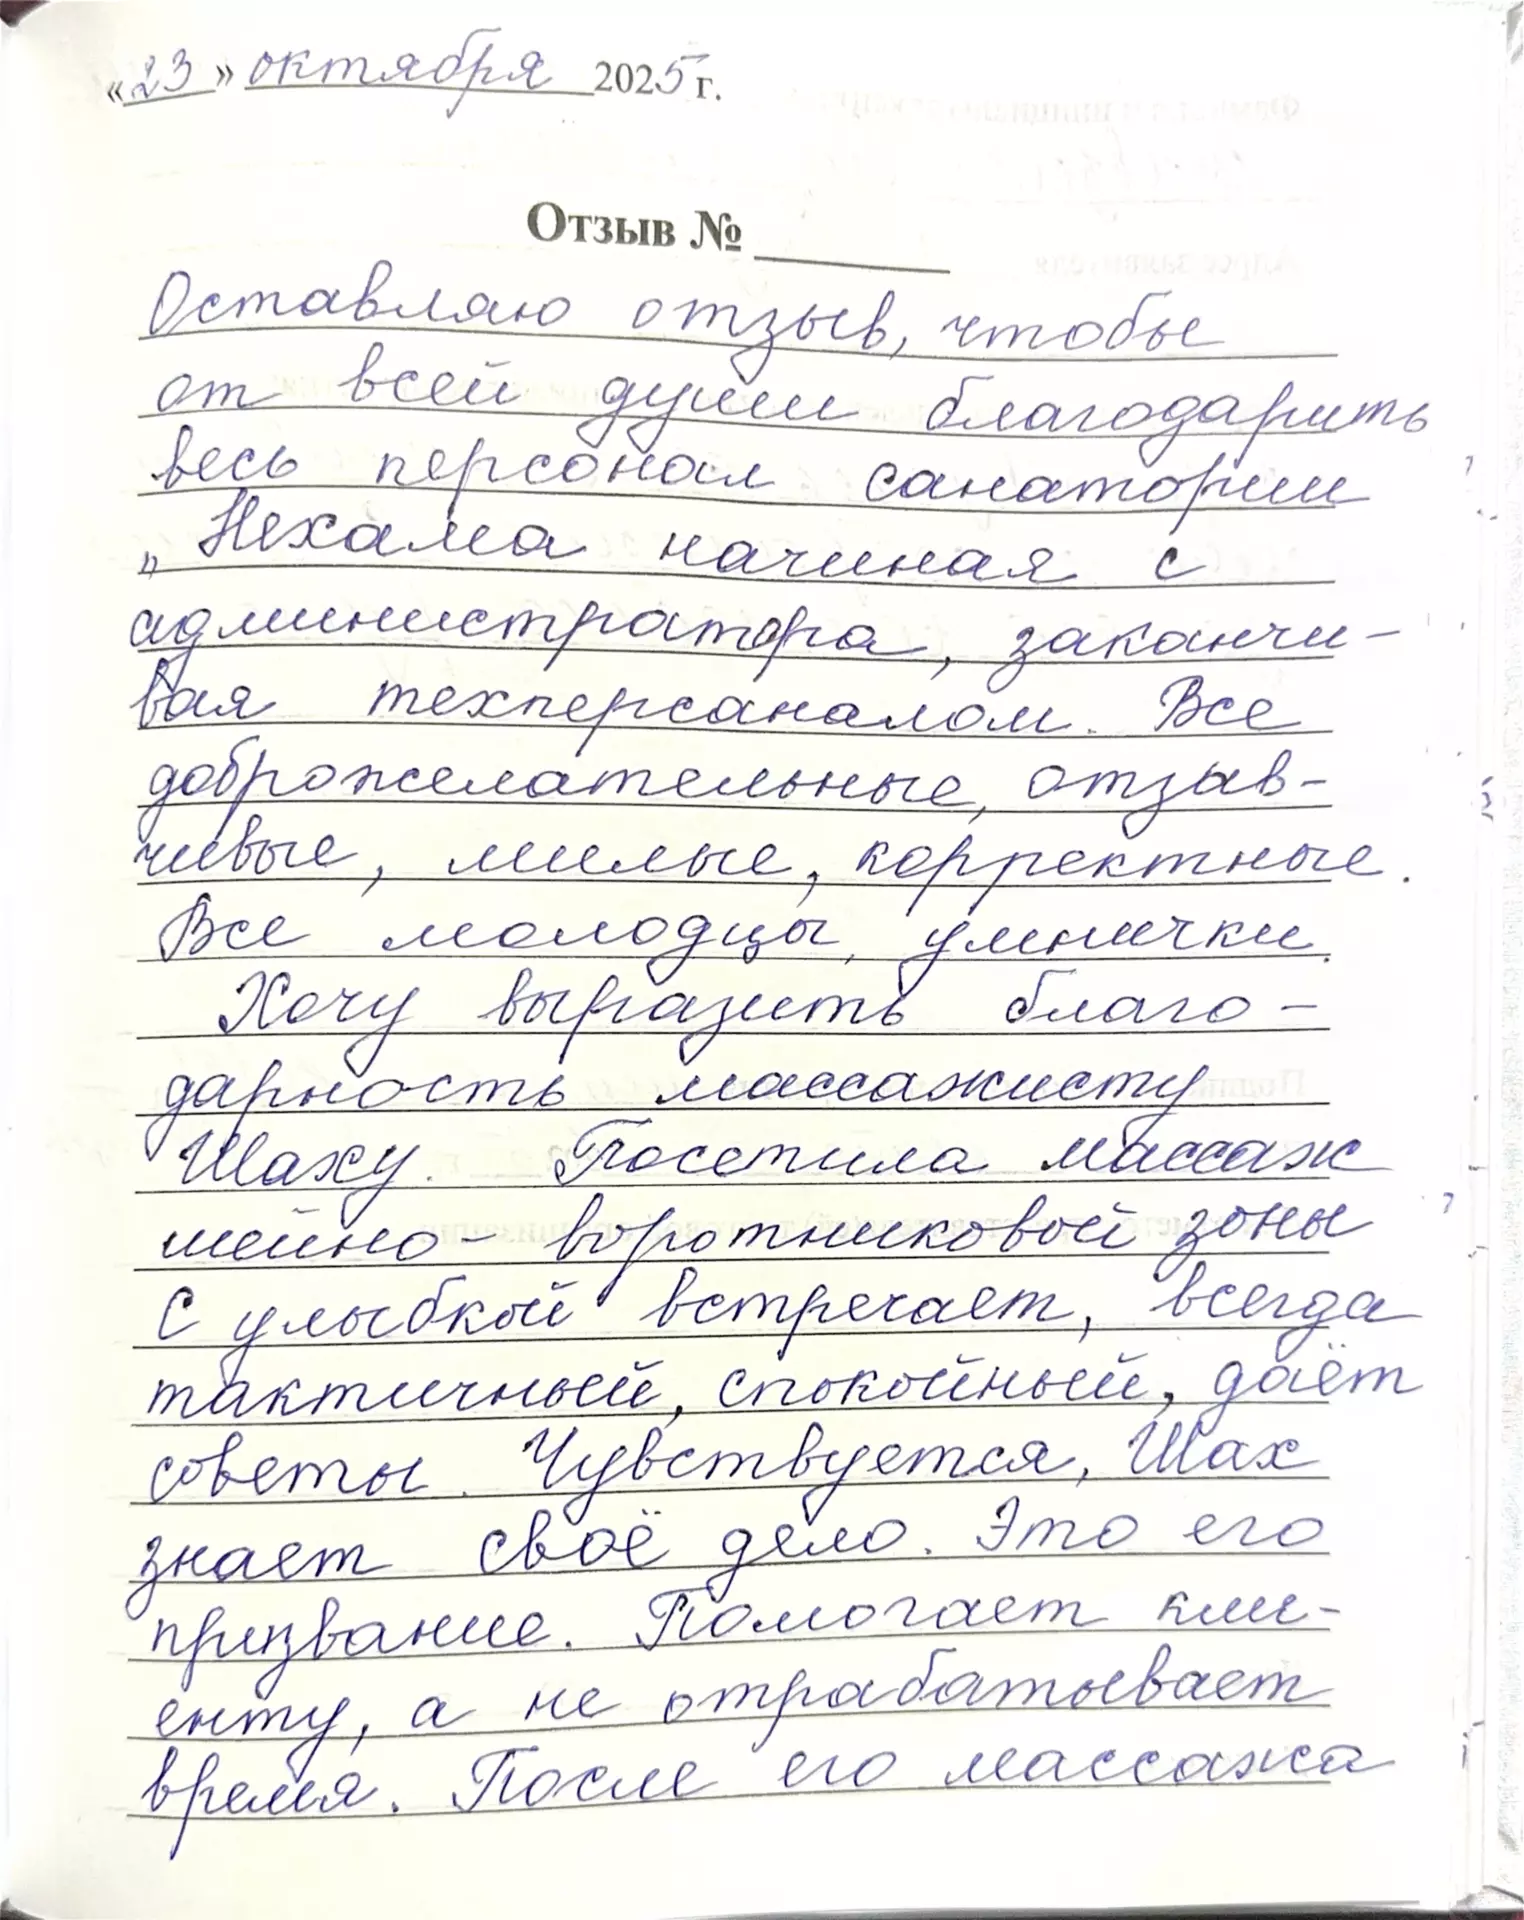 «23» октября 2025 г.
Отзыв № ______
Оставляю отзыв, чтобы
от всей души благодарить
весь персонал санатории
„Нехама начиная с
администратора, заканчи-
вая техперсаналом. Все
доброжелательные, отзыв-
чивые, милые, корректные.
Все молодцы, умнички.
Хочу выразить благо-
дарность массажисту
Шаху. Посетила массаж
шейно-воротниковой зоны
С улыбкой встречает, всегда
тактичный, спокойный, даёт
советы. Чувствуется, Шах
знает своё дело. Это его
призвание. Помогает кли-
енту, а не отрабатывает
время. После его массажа